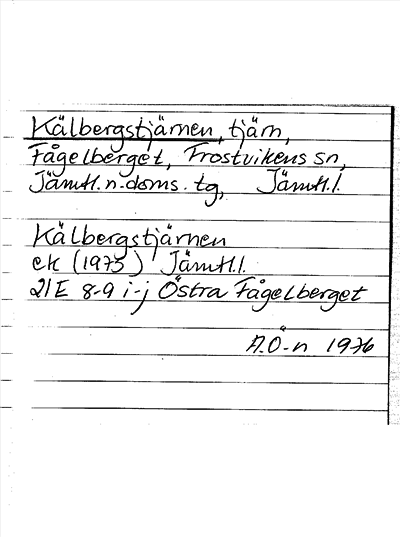 Kälbergstjärnen, tjärn,
Fågelberget, Frostvikens sn,
Jämtl. n. doms. tg, Jämtl. l.
Kälbergstjärnen
ek (1975) Jämtl. l.
21E 8-9 i-j Östra Fågelberget
A.Ö-n 1976